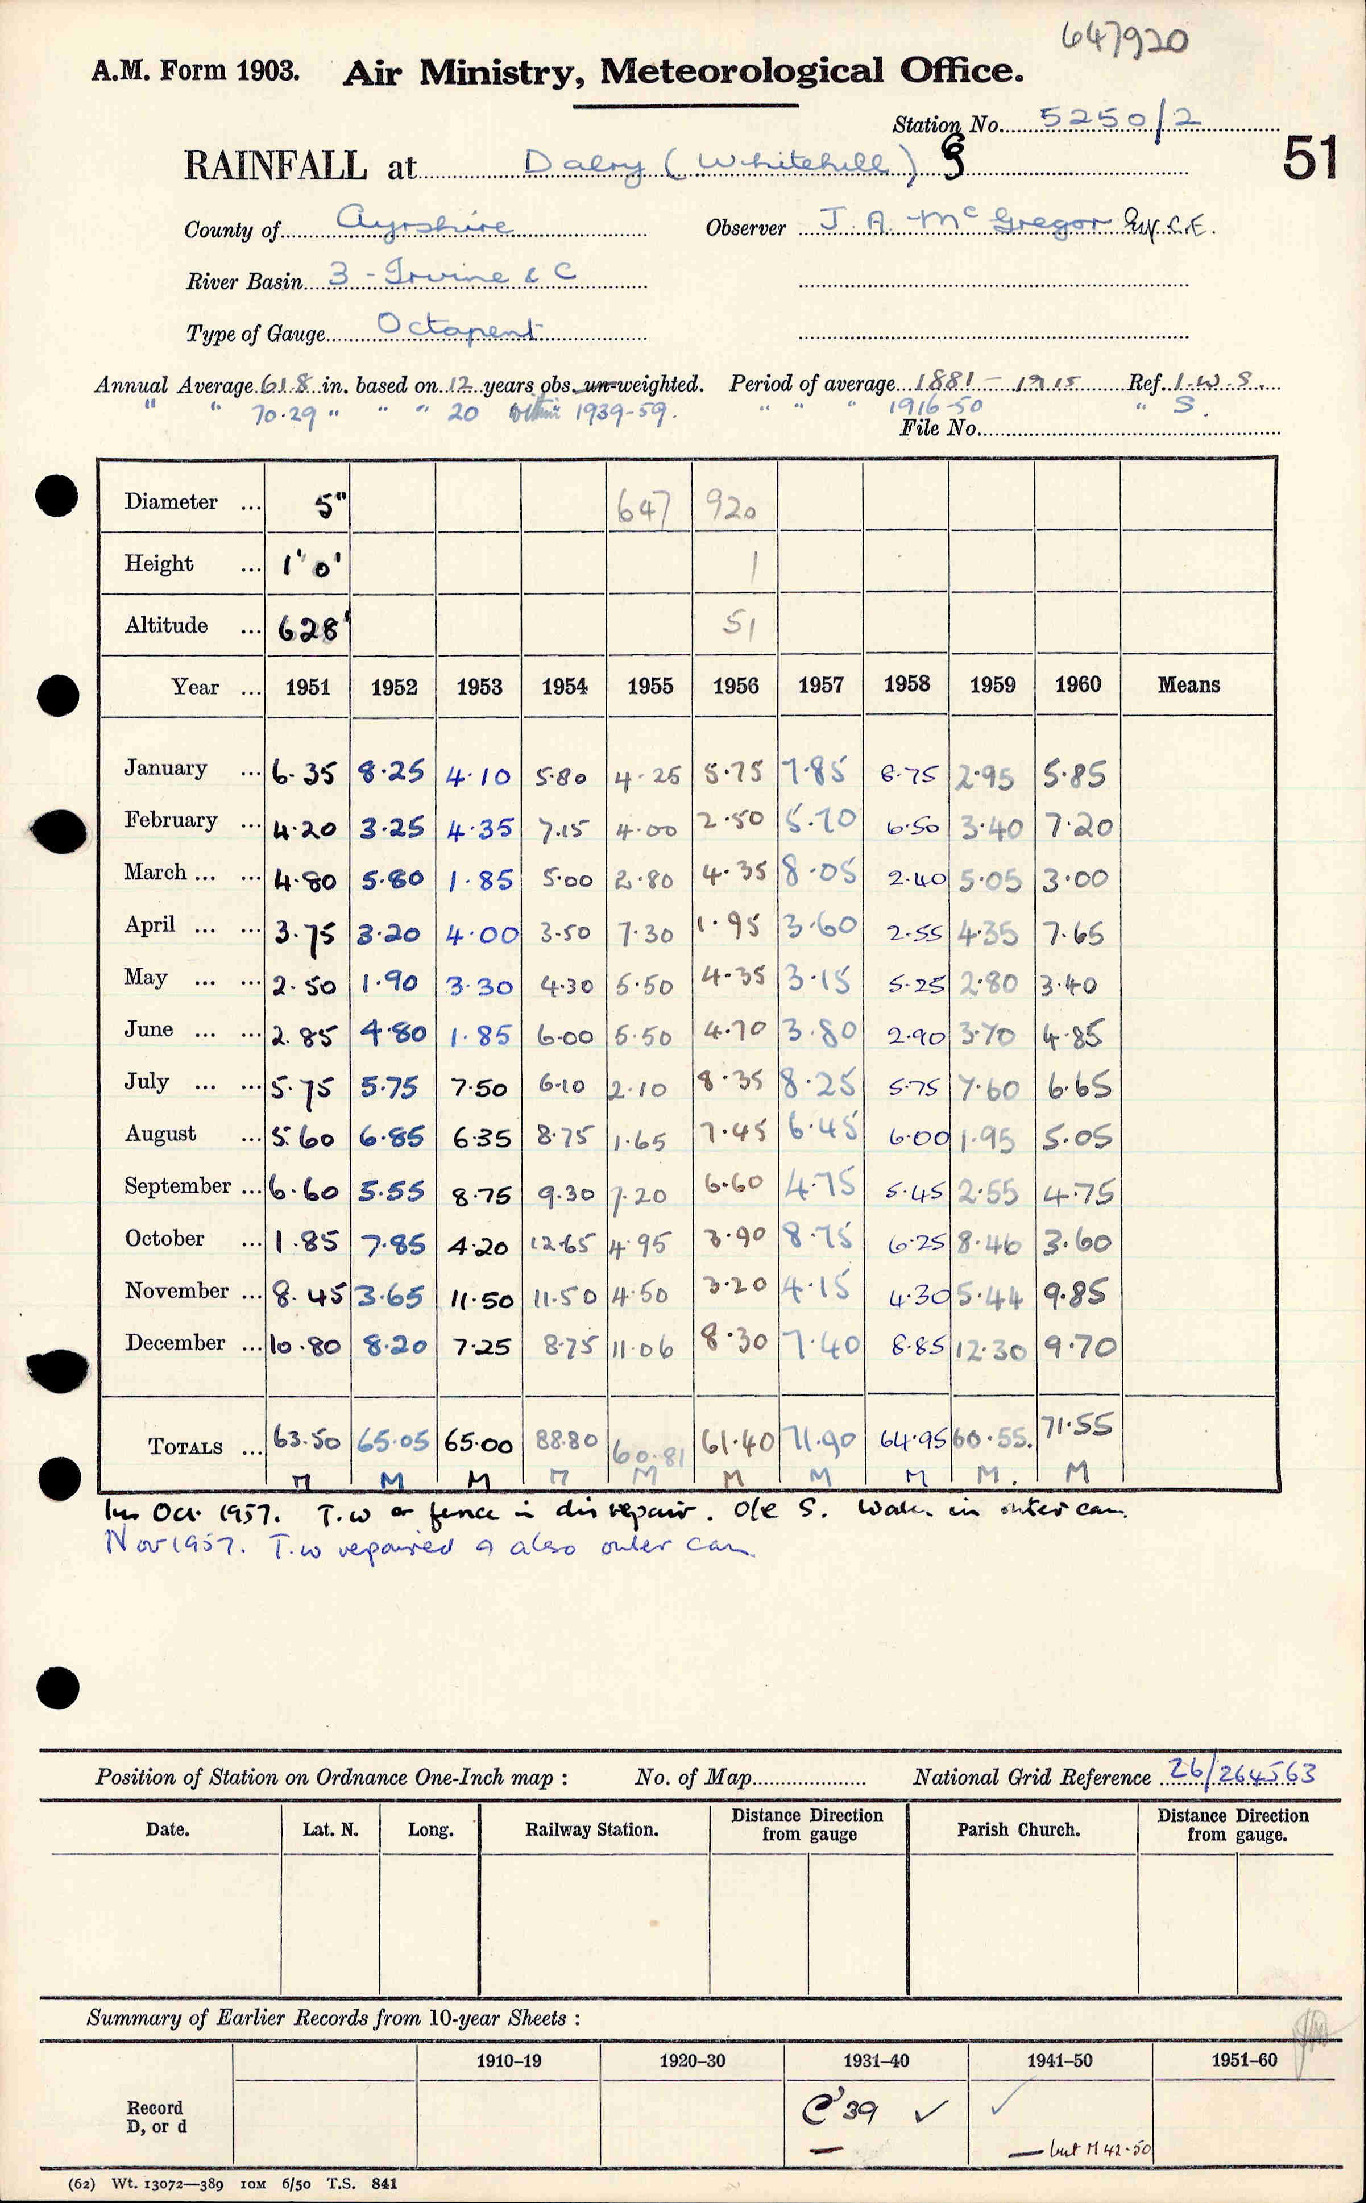 647920
A.M. Form 1903. Air Ministry, Meteorological Office.
Station No. 5250/2
51
RAINFALL at Dalry (Whitehill) §
County of Ayrshire Observer J. A. McGregor Esq. C.E.
River Basin 3 - Irvine & C
Type of Gauge Octapent
Annual Average 61.8 in. based on 12 years obs. un-weighted. Period of average 1881 - 1915 Ref. I.W.S.
" " 70.29 " " " 20 within 1939-59. " " " 1916-50 " S.
File No.
Diameter ... 5" 647 920
Height ... 1' 0" 1
Altitude ... 628' 51
Year ... 1951 1952 1953 1954 1955 1956 1957 1958 1959 1960 Means
January ... 6.35 8.25 4.10 5.80 4.25 5.75 7.85 8.75 2.95 5.85
February ... 4.20 3.25 4.35 7.15 4.00 2.50 5.70 6.50 3.40 7.20
March ... ... 4.80 5.80 1.85 5.00 2.80 4.35 8.05 2.40 5.05 3.00
April ... ... 3.75 3.20 4.00 3.50 7.30 1.95 3.60 2.55 4.35 7.65
May ... ... 2.50 1.90 3.30 4.30 5.50 4.35 3.15 5.25 2.80 3.40
June ... ... 2.85 4.80 1.85 6.00 5.50 4.70 3.80 2.90 3.70 4.85
July ... ... 5.75 5.75 7.50 6.10 2.10 8.35 8.25 5.75 7.60 6.65
August ... 5.60 6.85 6.35 8.75 1.65 7.45 6.45 6.00 1.95 5.05
September ... 6.60 5.55 8.75 9.30 7.20 6.60 4.75 5.45 2.55 4.75
October ... 1.85 7.85 4.20 12.65 4.95 3.90 8.75 6.25 8.46 3.60
November ... 8.45 3.65 11.50 11.50 4.50 3.20 4.15 4.30 5.44 9.85
December ... 10.80 8.20 7.25 8.75 11.06 8.30 7.40 8.85 12.30 9.70
TOTALS ... 63.50 65.05 65.00 88.80 60.81 61.40 71.90 64.95 60.55. 71.55
M M M M M M M M M. M
In Oct 1957. T.W or fence in disrepair. O/E S. Water in outer can.
Nov 1957. T.W repaired & also outer can.
Position of Station on Ordnance One-Inch map : No. of Map National Grid Reference 26/264563
Date. Lat. N. Long. Railway Station. Distance Direction from gauge Parish Church. Distance Direction from gauge.
Summary of Earlier Records from 10-year Sheets :
1910–19 1920–30 1931–40 1941–50 1951–60
Record D, or d C'39 ✓ ✓
— — but M 42-50
(62) Wt. 13072—389 10M 6/50 T.S. 841